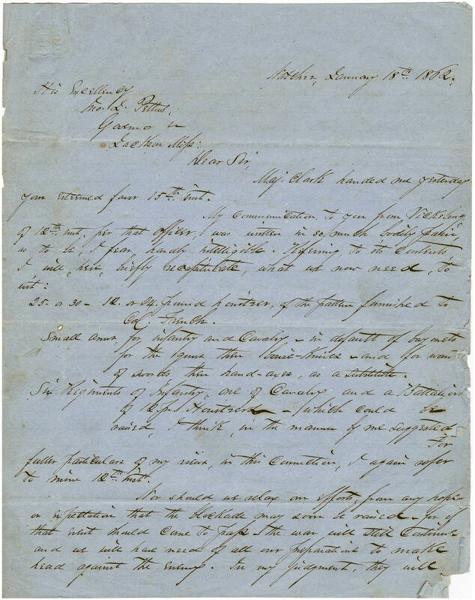 Natchez, January 18th 1862.
His Excellency
Jno. J. Pettus,
Governor
Jackson Miss:
Dear Sir,
Maj. Clark handed me yesterday
your esteemed favor 15th Inst.
My Communication to you from Vicksburg
of 12th inst, per that officer, was written in so much bodily pain
as to be, I fear, hardly intelligible. Referring to its Contents
I will, here, briefly recapitulate, what we now need, to
wit:
25 or 30 - 12 or 24 pound howitzers, of the pattern furnished to
Col. Smith.
Small arms for infantry and Cavalry - in default of bayonets
for the guns, then - and for want
of swords then hand-axes, as a Substitute.
Six Regiments of Infantry, one of Cavalry and a Battalion
of Howitzers - (which could be
raised, I think, in the manner of me suggested
For
fuller particulars of my views, in this Connection, I again refer
to mine 12th Inst.
Nor should we relax an effort, from any hope
or expectation that the blockade may soon be raised - for if
that event should Come to pass the war will still Continue
and we will have need of all our preparations to make
head against the Enemy. In my judgment, they will